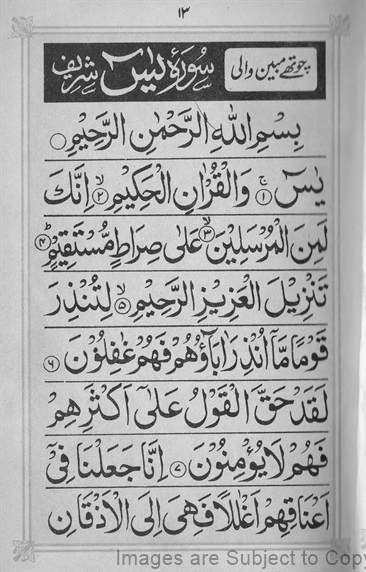 ١٣
سورۂ یٰسٓ شریف
چوتھے مبین والی
بِسْمِ اللهِ الرَّحْمٰنِ الرَّحِيْمِ ○
يٰسٓ ۚ ١ وَالْقُرْاٰنِ الْحَكِيْمِ ۙ ٢ اِنَّكَ
لَمِنَ الْمُرْسَلِيْنَ ۙ ٣ عَلٰى صِرَاطٍ مُّسْتَقِيْمٍ ؕ ٤
تَنْزِيْلَ الْعَزِيْزِ الرَّحِيْمِ ۙ ٥ لِتُنْذِرَ
قَوْمًا مَّاۤ اُنْذِرَ اٰبَآؤُهُمْ فَهُمْ غٰفِلُوْنَ ٦
لَقَدْ حَقَّ الْقَوْلُ عَلٰٓى اَكْثَرِهِمْ
فَهُمْ لَا يُؤْمِنُوْنَ ٧ اِنَّا جَعَلْنَا فِىْٓ
اَعْنَاقِهِمْ اَغْلٰلًا فَهِىَ اِلَى الْاَذْقَانِ
Images are Subject to Copy